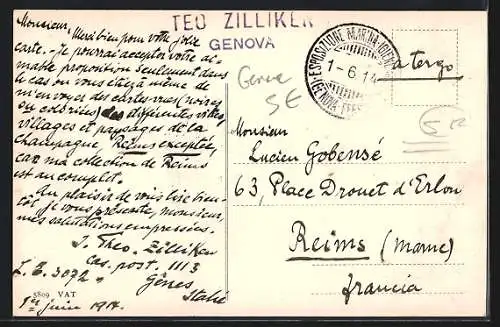 Monsieur,
Merci bien pour votre jolie
carte. - Je pourrai accepter votre ai-
mable proposition seulement dans
le cas où vous étiez à même de
m'envoyer des cartes vues (noires
ou coloriées) des differentes villes,
villages et paysages de la
Champagne, Reims exceptée,
car ma collection de Reims
est au complet.
Au plaisir de vous lire bien-
tôt je vous présente, monsieur,
mes salutations empressées.
J. Theo. Zilliken
Cas. post. 1113
L. E. 3072 Gênes
Italie
5809 VAT
1er Juin 1914.
TEO ZILLIKEN
GENOVA
ESPOSIZIONE
1-6.14
GENOVA
a tergo
Genova
SE
Monsieur
Lucien Gobensé
63, Place Drouet d'Erlon
Reims (Marne)
Francia